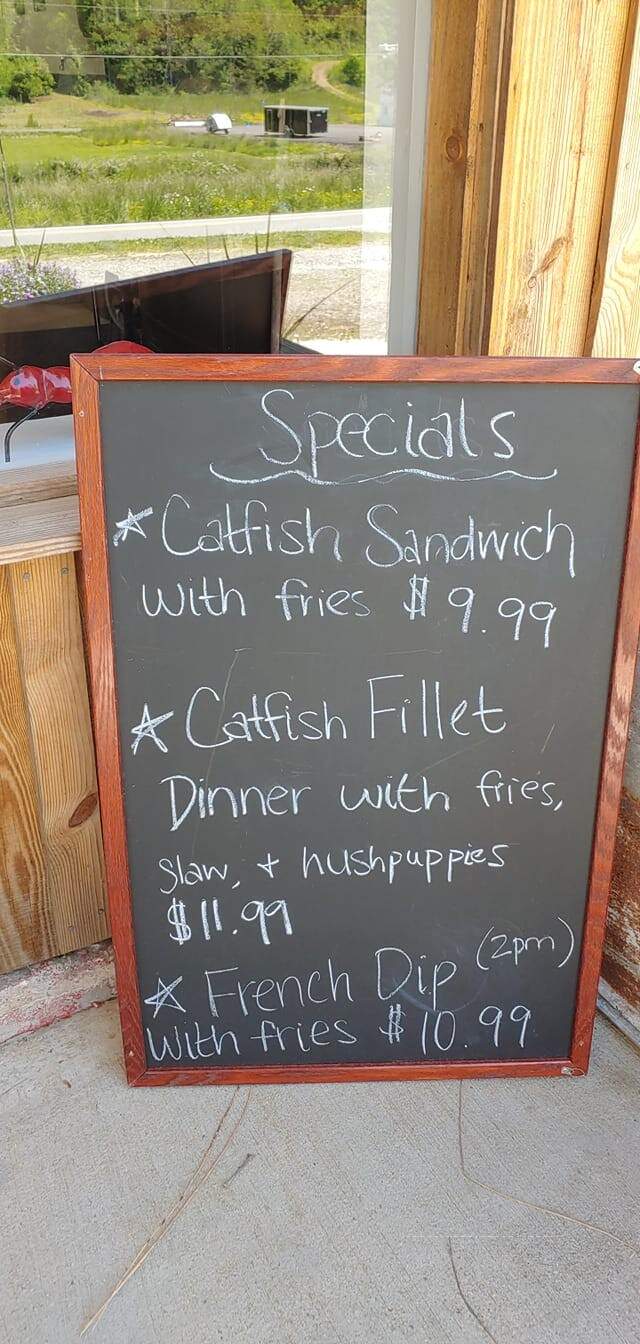 Specials
* Catfish Sandwich
with fries $9.99
* Catfish Fillet
Dinner with fries,
Slaw, + hushpuppies
$11.99
* French Dip (2pm)
With fries $10.99